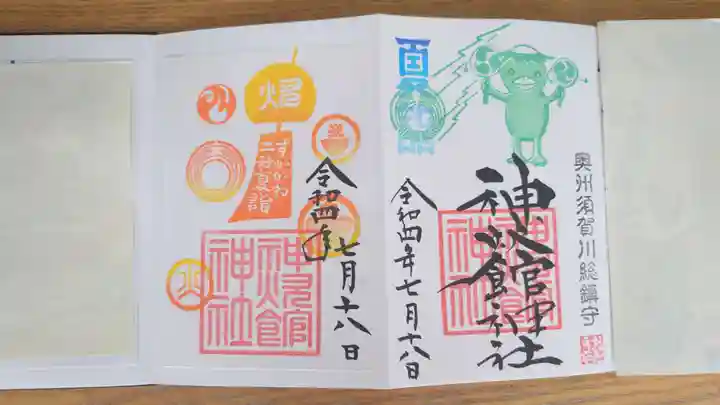 奥州須賀川総鎮守
神炊館神社
夏詣
令和四年七月十八日
すかがわ
二社夏詣
令和四年
七月十八日
神炊館
神社